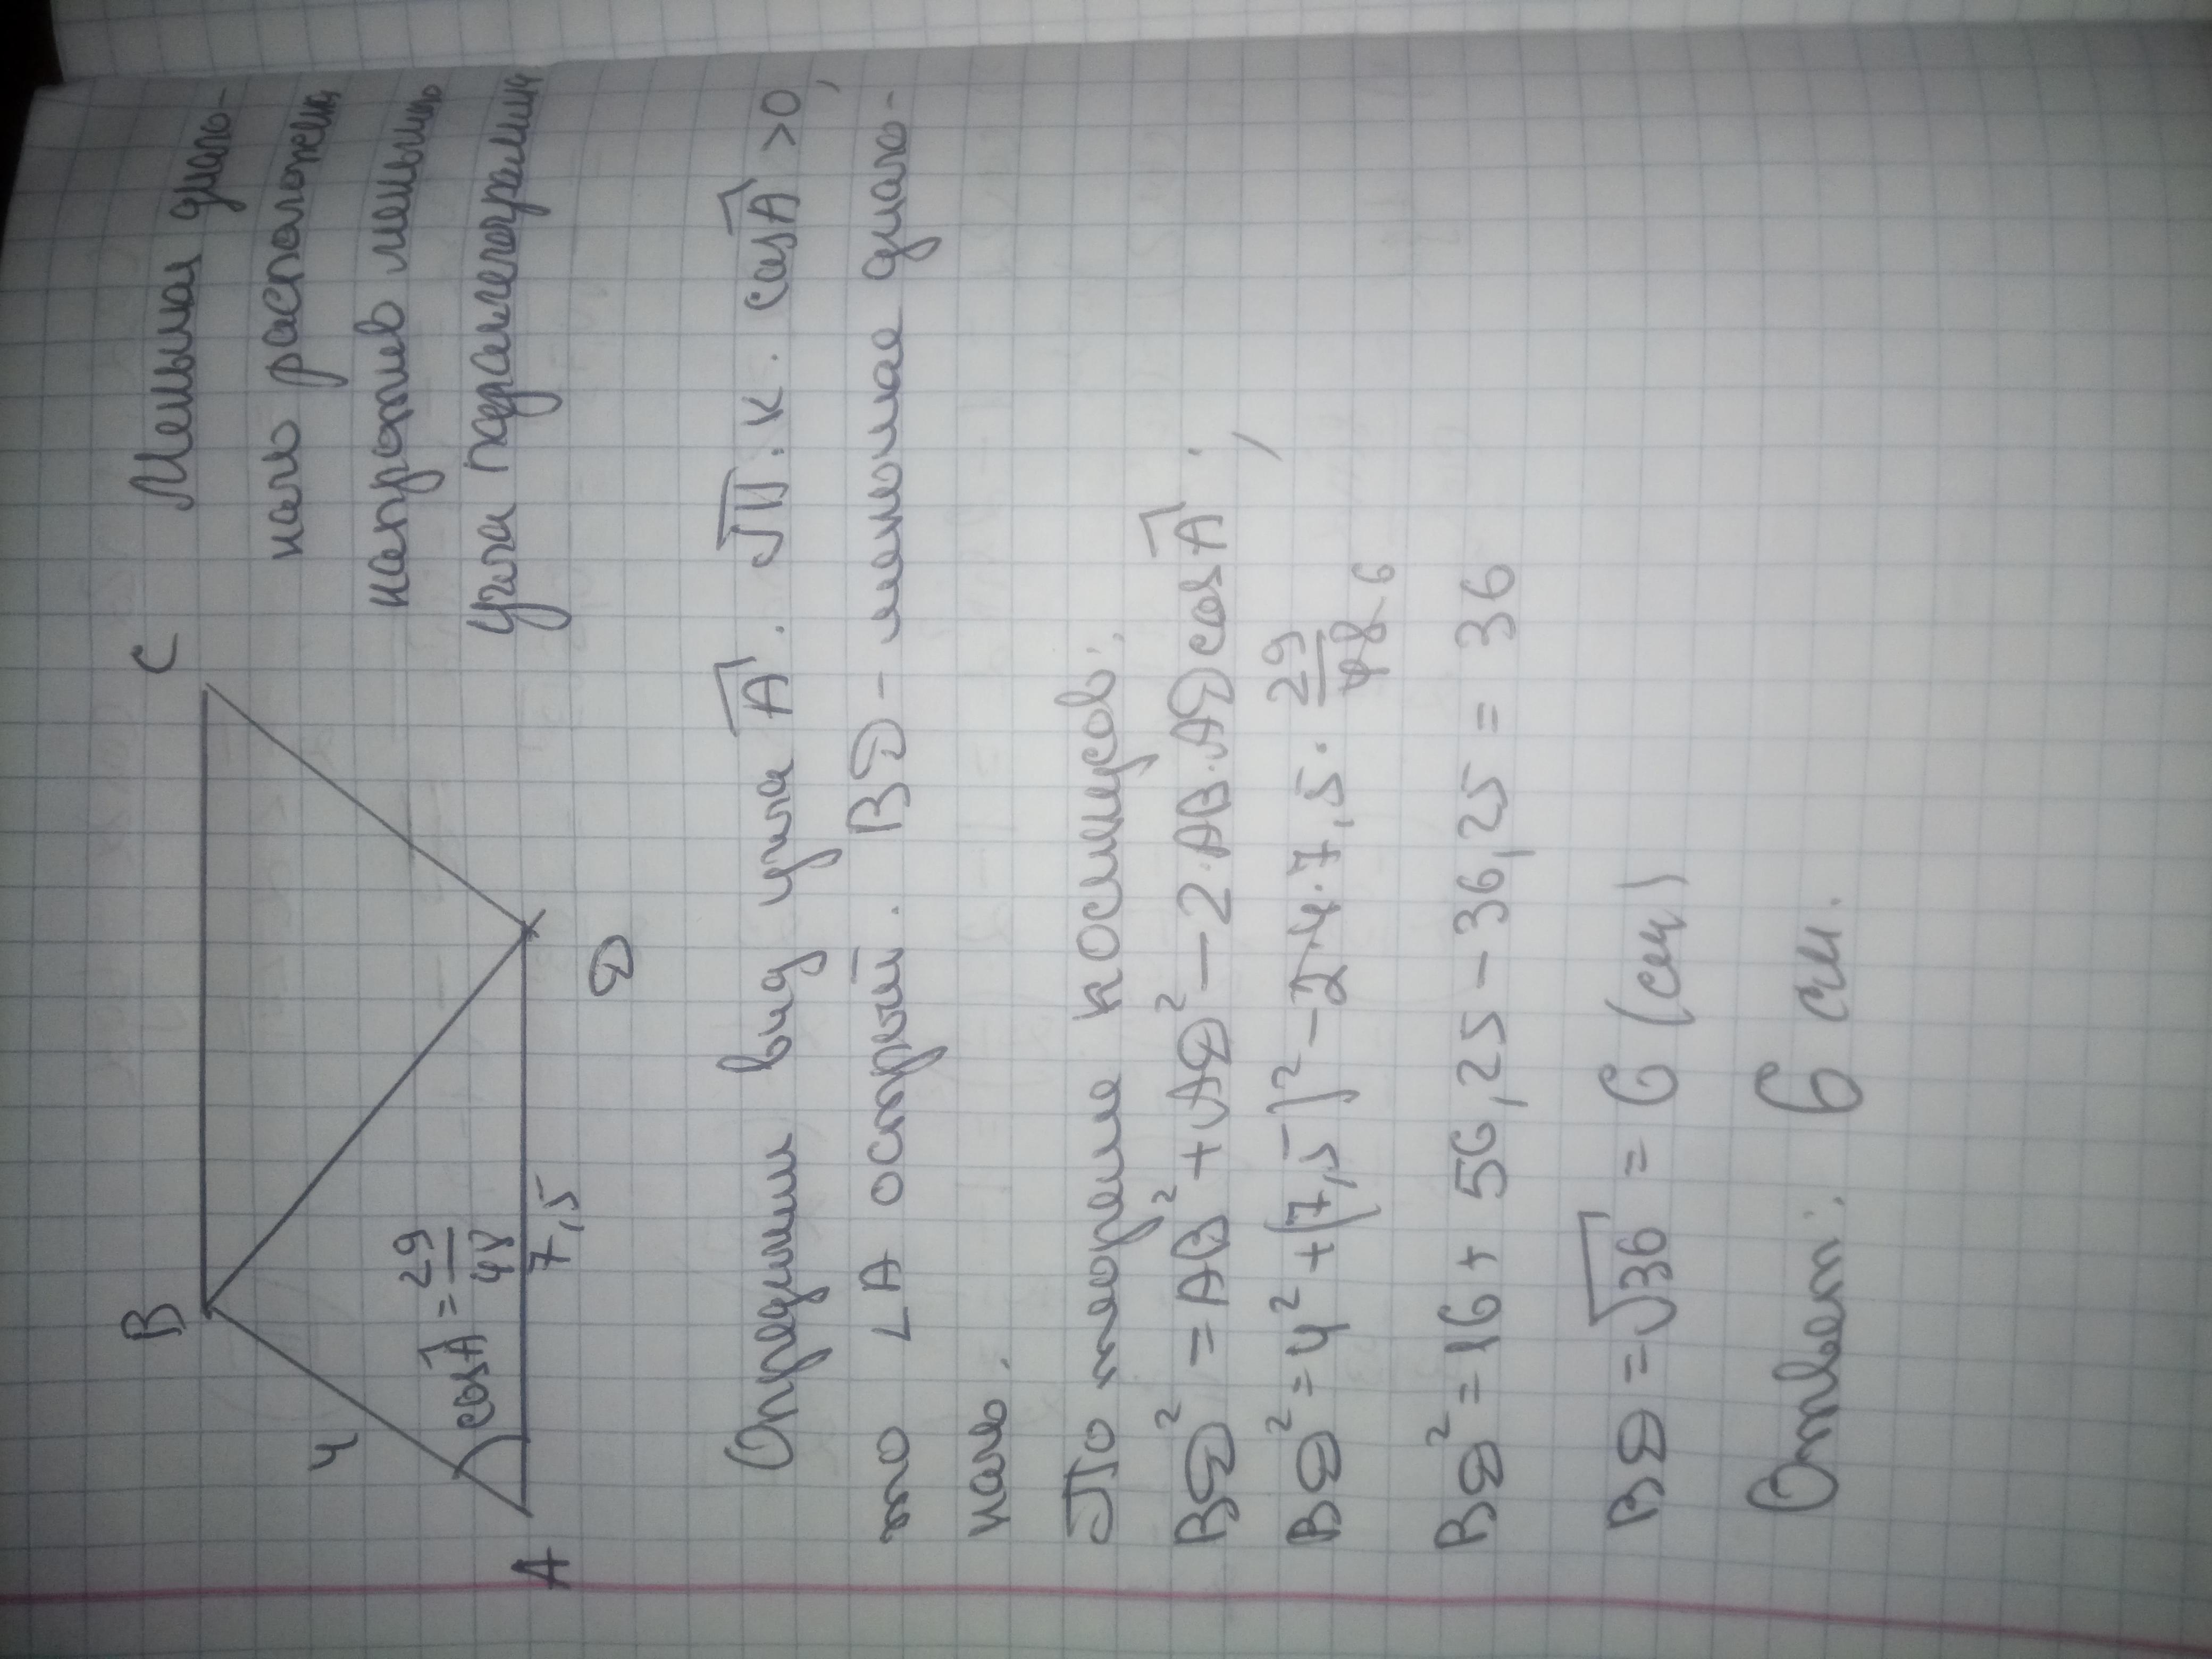 B
C
4
cos Â = 29/48
A
7,5
D
Меньшая диаго-
наль расположена
напротив меньшего
угла параллелограмма
Определим вид угла Â. Т.к. cos Â > 0,
то ∠A острый. BD - меньшая диаго-
наль.
По теореме косинусов:
BD² = AB² + AD² - 2·AB·AD cos Â;
BD² = 4² + (7,5)² - 2·4·7,5 · 29/48 6
BD² = 16 + 56,25 - 36,25 = 36
BD = √36 = 6 (см)
Ответ: 6 см.